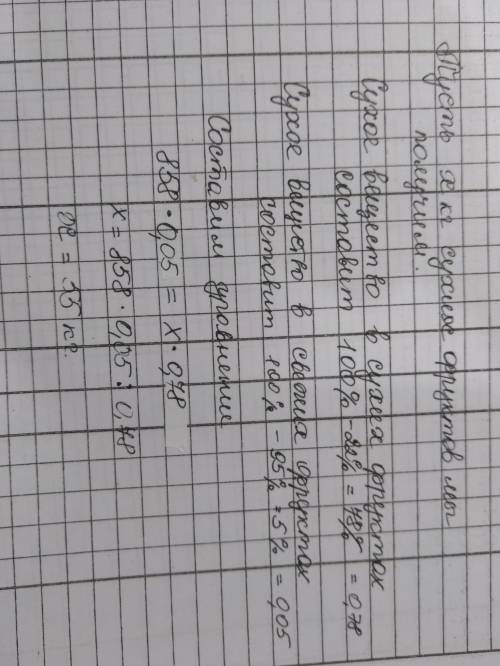 Пусть х кг сухих фруктов мы
получим.
Сухое вещество в сухих фруктах
составит 100% - 22% = 78% = 0,78
Сухое вещество в свежих фруктах
составит 100% - 95% = 5% = 0,05
Составим уравнение
858 · 0,05 = х · 0,78
х = 858 · 0,05 : 0,78
х = 55 кг.